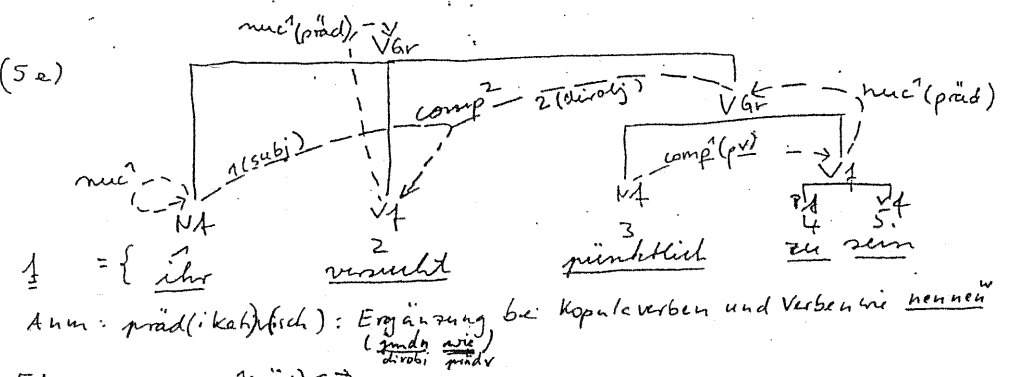 nuc¹(präd)
VGr
(5e)
comp² 2(dirobj)
VGr
nuc¹(präd)
1(subj)
comp¹(pv)
nuc¹
V1
Nf
Vf
Nf
Pf Vf
1 2 3 4 5
f = { ihr versucht pünktlich zu sein
Anm: präd(ikativisch): Ergänzung bei Kopulaverben und Verben wie nennen
(jmdn wie)
dirobj prädv